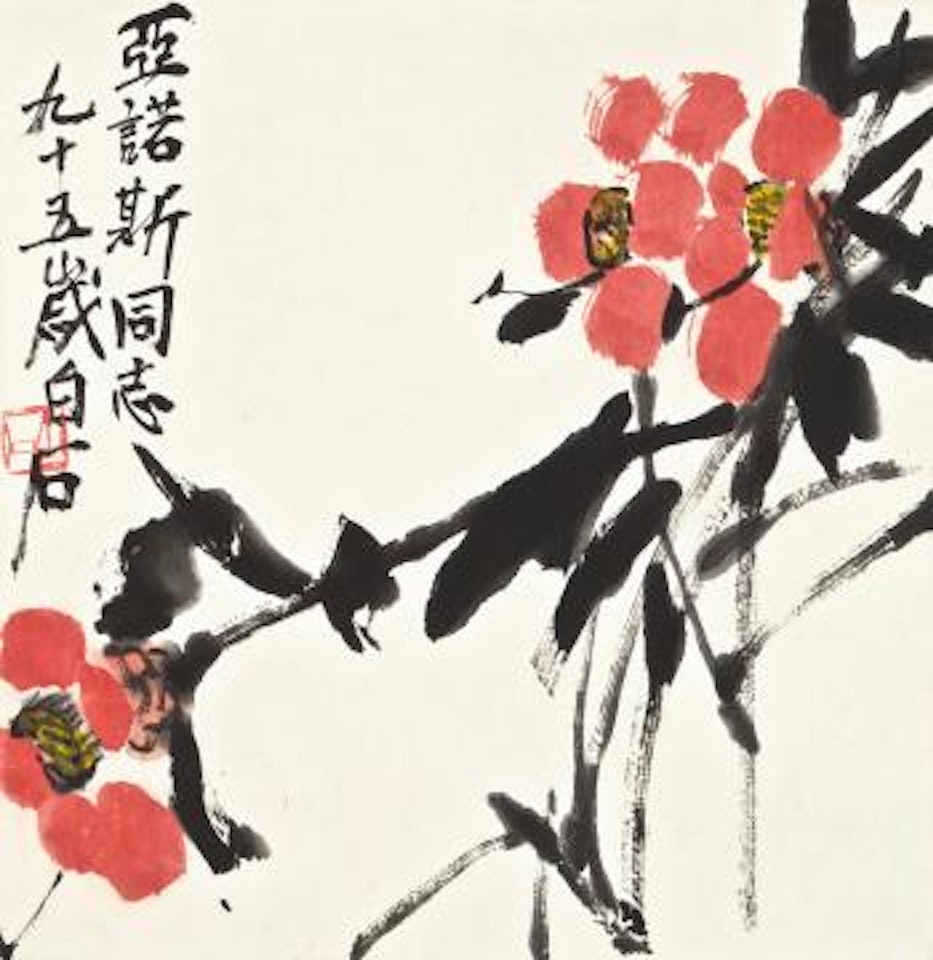 亞諾斯同志
九十五歲白石